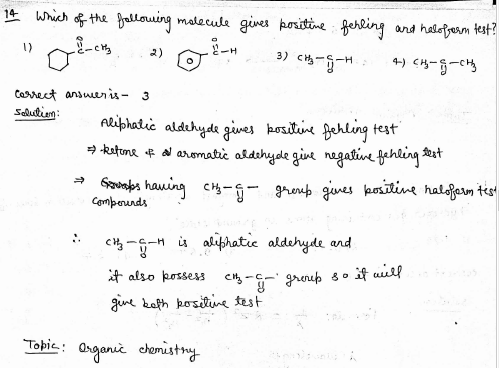 14 Which of the following molecule gives positive fehling and haloform test?
1) O C-CH3 2) O C-H 3) CH3-C-H O 4) CH3-C-CH3 O
Correct answer is - 3
Solution:
Aliphatic aldehyde gives positive fehling test
⇒ ketone & aromatic aldehyde give negative fehling test
⇒ Groups having CH3-C- O group gives positive haloform test
compounds
∴ CH3-C-H O is aliphatic aldehyde and
it also possess CH3-C- O group so it will
give both positive test
Topic: Organic chemistry